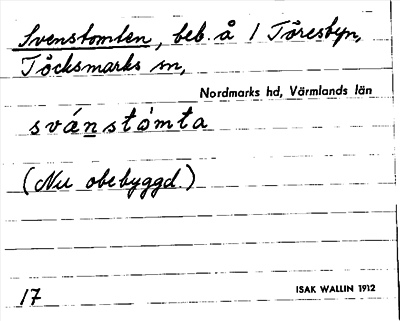 Svenstomten, beb. å 1 Töresbyn,
Töcksmarks sn,
Nordmarks hd, Värmlands län
svánstòmta
(Nu obebyggd.)
17
ISAK WALLIN 1912